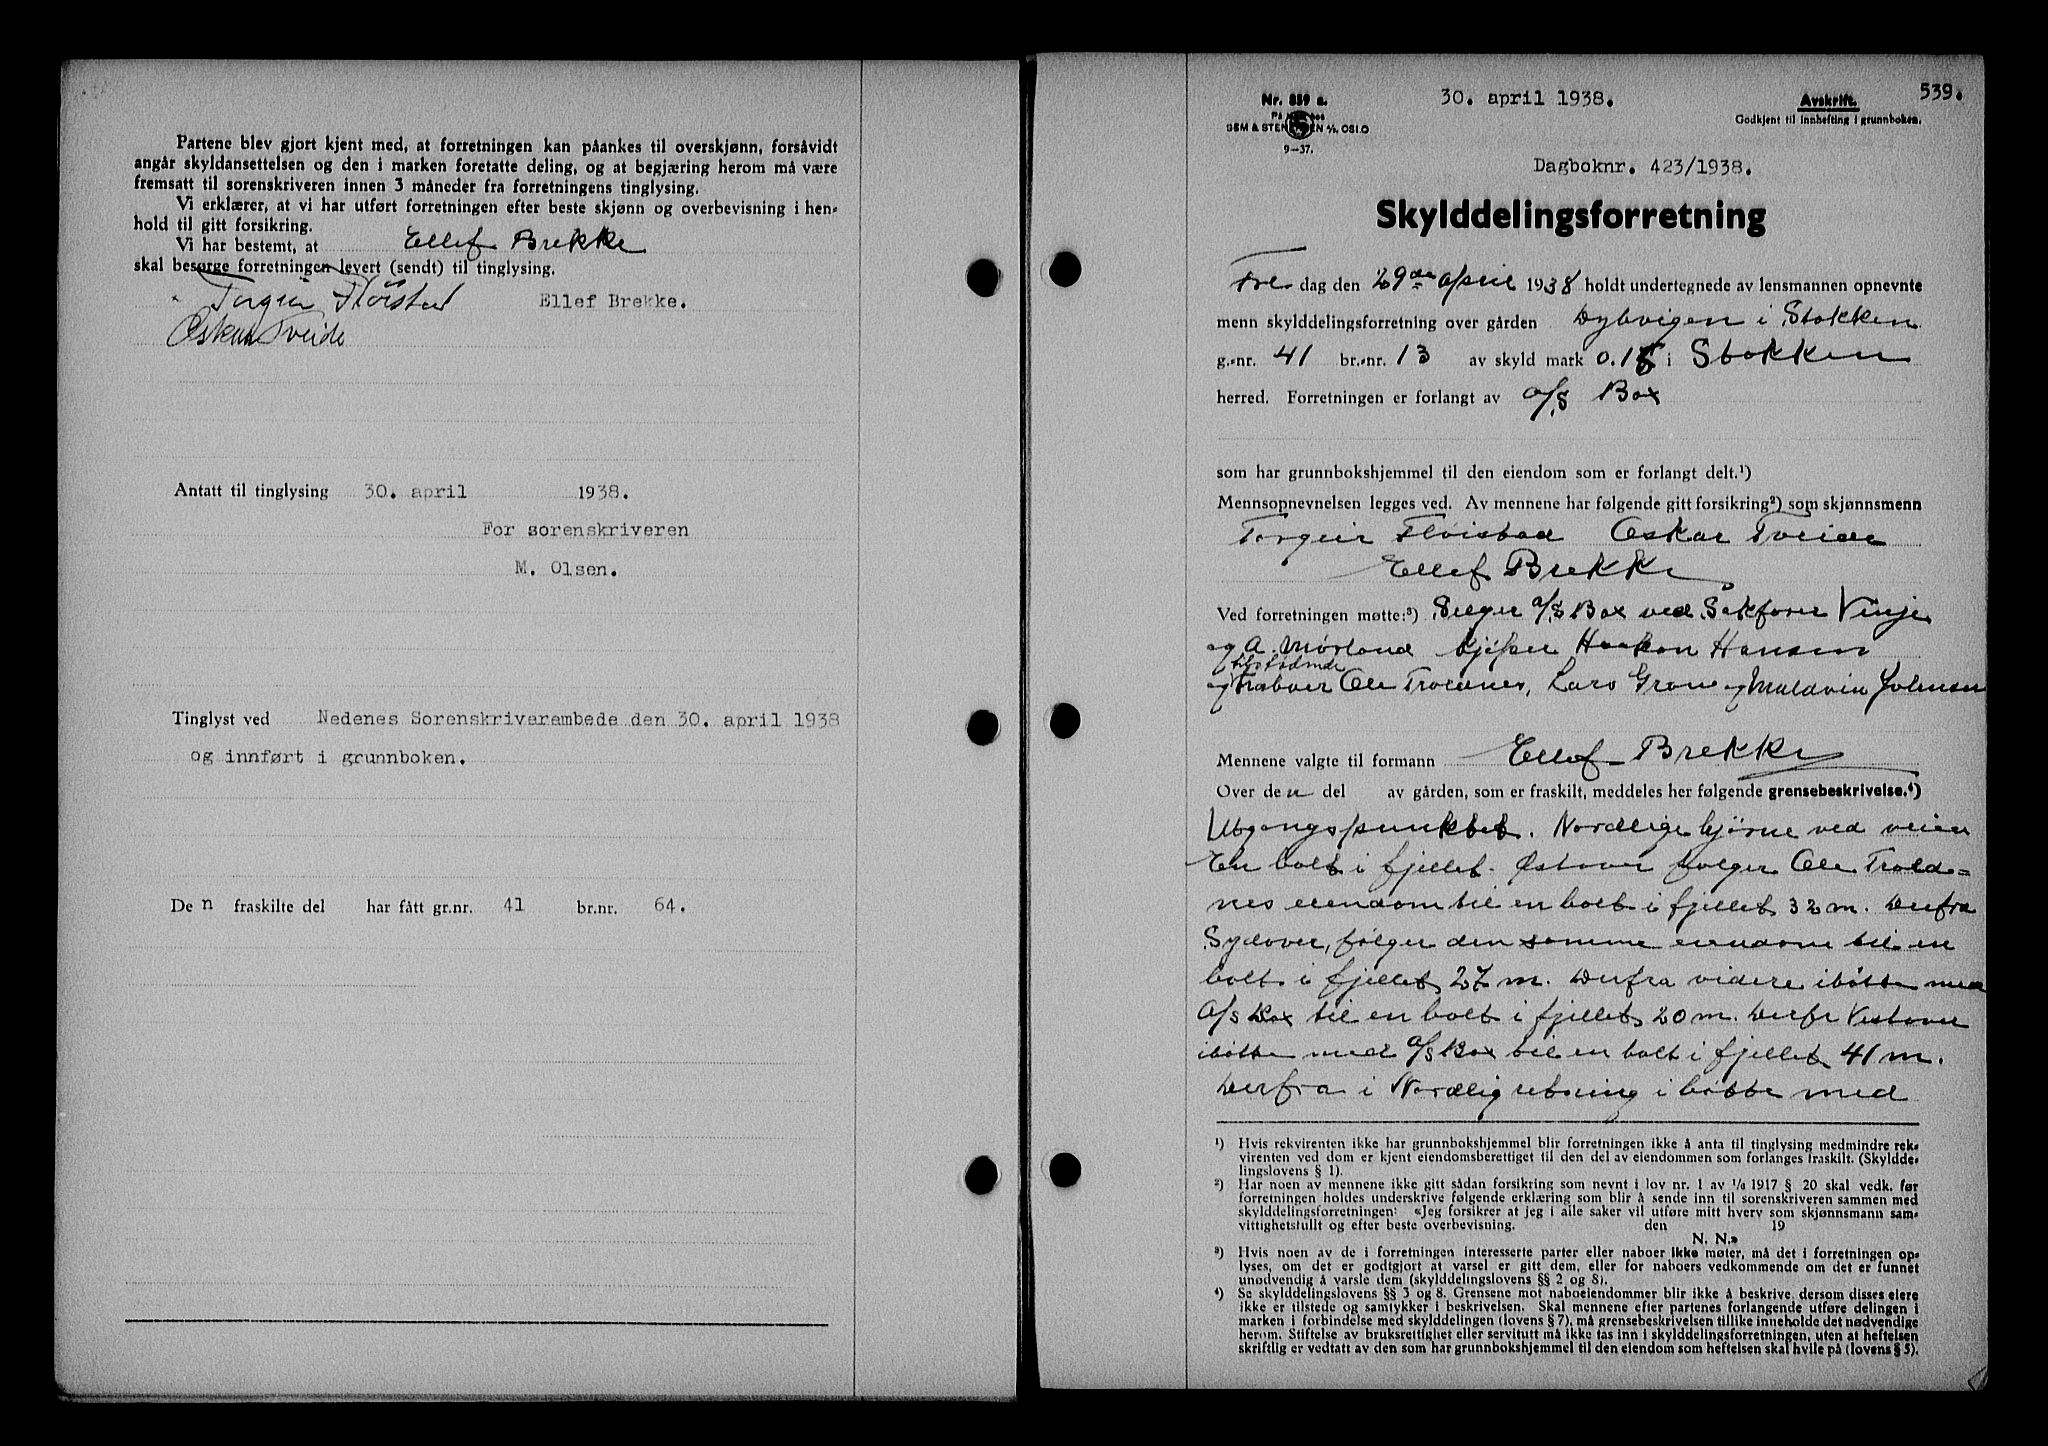 Partene blev gjort kjent med, at forretningen kan påankes til overskjønn, forsåvidt
angår skyldansettelsen og den i marken foretatte deling, og at begjæring herom må være
fremsatt til sorenskriveren innen 3 måneder fra forretningens tinglysing.
Vi erklærer, at vi har utført forretningen efter beste skjønn og overbevisning i hen-
hold til gitt forsikring.
Vi har bestemt, at Ellef Brekke
skal besørge forretningen levert (sendt) til tinglysing.
Torgeir Fløistad Ellef Brekke.
Oskar Tveide
Antatt til tinglysing 30. april 1938.
For sorenskriveren
M. Olsen.
Tinglyst ved Nedenes Sorenskriverembede den 30. april 1938
og innført i grunnboken.
De n fraskilte del har fått gr.nr. 41 br.nr. 64.
539.
Nr. 859 a. 30. april 1938. Avskrift.
Godkjent til innhefting i grunnboken.
SEM & STENERSEN A/S, OSLO
9-37.
Dagboknr. 423/1938.
Skylddelingsforretning
Fre dag den 29de april 1938 holdt undertegnede av lensmannen opnevnte
menn skylddelingsforretning over gården Dybvigen i Stokken
g.-nr. 41 br.-nr. 13 av skyld mark 0.15 i Stokken
herred. Forretningen er forlangt av a/s Box
som har grunnbokshjemmel til den eiendom som er forlangt delt.¹)
Mennsopnevnelsen legges ved. Av mennene har følgende gitt forsikring²) som skjønnsmenn
Torgeir Fløistad Oskar Tveide
Ellef Brekke
Ved forretningen møtte:³) Selger a/s Box ved Sakfører Vinje
og A. Mørland kjøper Haakon Hansen
og tilstødende naboer Ole Troldnes, Lars Grane og Maldvin Johnsen
Mennene valgte til formann Ellef Brekke
Over de n del av gården, som er fraskilt, meddeles her følgende grensebeskrivelse.⁴)
Utgangspunktet. Nordlige hjørne ved veien
En bolt i fjellet. Østover følger Ole Trold=
nes eiendom til en bolt i fjellet 32 m. Derfra
Sydover, følger den samme eiendom til en
bolt i fjellet 27 m. Derfra videre i bøtte med
A/s Box til en bolt i fjellet 20 m. Derfr Vestover
i bøtte med a/s Box til en bolt i fjellet 41 m.
Derfra i Nordlig retning i bøtte med
¹) Hvis rekvirenten ikke har grunnbokshjemmel blir forretningen ikke å anta til tinglysing medmindre rek-
virenten ved dom er kjent eiendomsberettiget til den del av eiendommen som forlanges fraskilt. (Skyldde-
lingslovens § 1).
²) Har noen av mennene ikke gitt sådan forsikring som nevnt i lov nr. 1 av 1/6 1917 § 20 skal vedk. før
forretningen holdes underskrive følgende erklæring som blir å sende inn til sorenskriveren sammen med
skylddelingsforretningen: «Jeg forsikrer at jeg i alle saker vil utføre mitt hverv som skjønnsmann sam-
vittighetsfullt og efter beste overbevisning. den 19
N. N.»
³) Hvis noen av de i forretningen interesserte parter eller naboer ikke møter, må det i forretningen op-
lyses, om det er godtgjort at varsel er gitt dem, eller for naboers vedkommende om det er funnet
unødvendig å varsle dem (skylddelingslovens §§ 2 og 8).
⁴) Se skylddelingslovens §§ 3 og 8. Grensene mot naboeiendommer blir ikke å beskrive, dersom disses eiere
ikke er tilstede og samtykker i beskrivelsen. Skal mennene efter partenes forlangende utføre delingen i
marken i forbindelse med skylddelingen (lovens § 7), må grensebeskrivelsen tillike inneholde det nødvendige
herom. Stiftelse av bruksrettighet eller servitutt må ikke tas inn i skylddelingsforretningen, uten at heftelsen
skriftlig er vedtatt av den som har grunnbokshjemmel til den eiendom som heftelsen skal hvile på (lovens § 5).